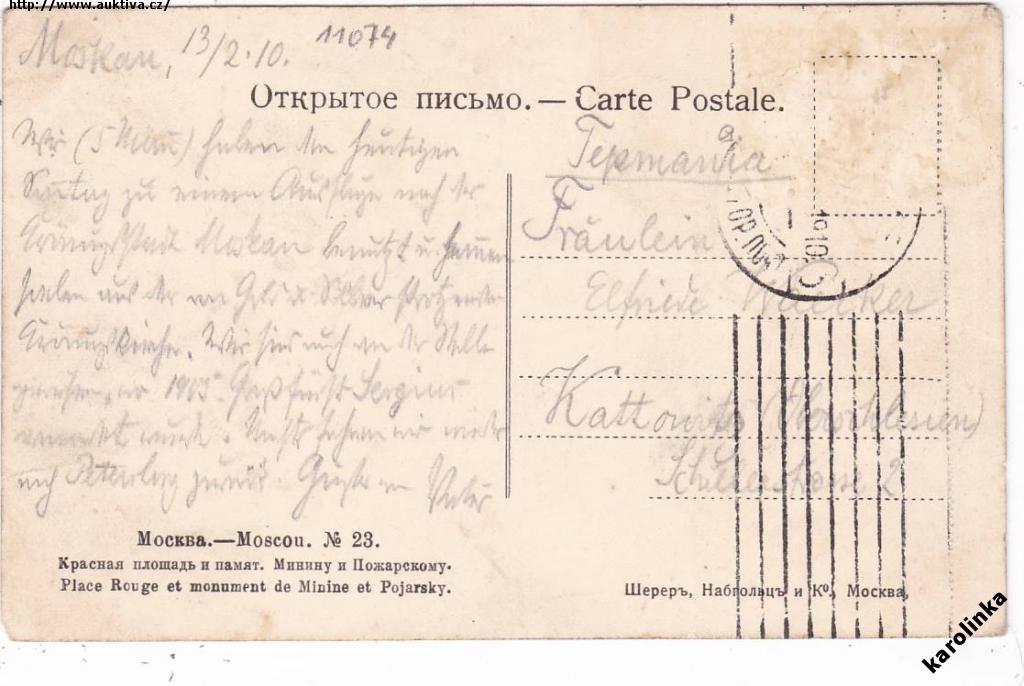 http://www.auktiva.cz/
Moskau, 13/2.10.
11074
Открытое письмо. — Carte Postale.
Wir (5 Mann) haben den heutigen
Sonntag zu einem Ausfluge nach der
Krönungsstadt Moskau benutzt u. kommen
soeben aus der von Gold u. Silber strotzenden
Krönungskirche. Wir sind auch an der Stelle
gewesen, wo 1905 Großfürst Sergius
ermordet wurde. Nachts fahren wir wieder
nach Petersburg zurück. Gruß von Vater
Германія
Fräulein
Elfriede
Kattowitz (Oberschlesien)
Schillerstrasse 2
Москва.—Moscou. № 23.
Красная площадь и памят. Минину и Пожарскому.
Place Rouge et monument de Minine et Pojarsky.
Шереръ, Набгольцъ и Ко. Москва.
karolinka